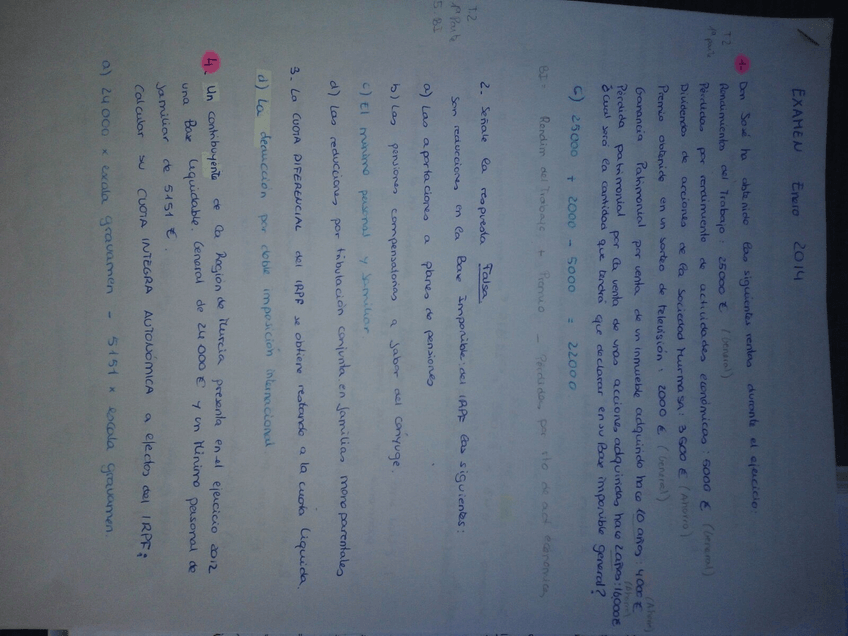 EXAMEN Enero 2014
T2
1ª parte
1- Don José ha obtenido las siguientes rentas durante el ejercicio:
Rendimiento del Trabajo: 25000 € (General)
Pérdidas por rendimiento de actividades económicas: 5000 € (General)
Dividendo de acciones de la Sociedad Murmasa: 3500 € (Ahorro)
Premio obtenido en un sorteo de televisión: 2000 € (General)
Ganancia Patrimonial por venta de un inmueble adquirido hace 10 años: 4000 € (Ahorro)
Pérdida patrimonial por la venta de unas acciones adquiridas hace 2 años: 16000 € (Ahorro)
¿Cuál será la cantidad que tendrá que declarar en su Base imponible general?
c) 25000 + 2000 - 5000 = 22000
BI: Rendim del Trabajo + Premio - Pérdidas por rto de act económica
T2
1ª Parte
S. BI
2. Señale la respuesta Falsa
Son reducciones en la Base Imponible del IRPF las siguientes:
a) Las aportaciones a planes de pensiones
b) Las pensiones compensatorias a favor del cónyuge.
c) El mínimo personal y familiar
d) Las reducciones por tributación conjunta en familias monoparentales
3. La CUOTA DIFERENCIAL del IRPF se obtiene restando a la cuota líquida.
d) La deducción por doble imposición internacional
4. Un contribuyente de la Región de Murcia presenta en el ejercicio 2012
una Base liquidable General de 24 000 € y un Mínimo personal de
familiar de 5151 €.
Calcular su CUOTA INTEGRA AUTONÓMICA a efectos del IRPF:
a) 24 000 x escala gravamen - 5151 x escala gravamen